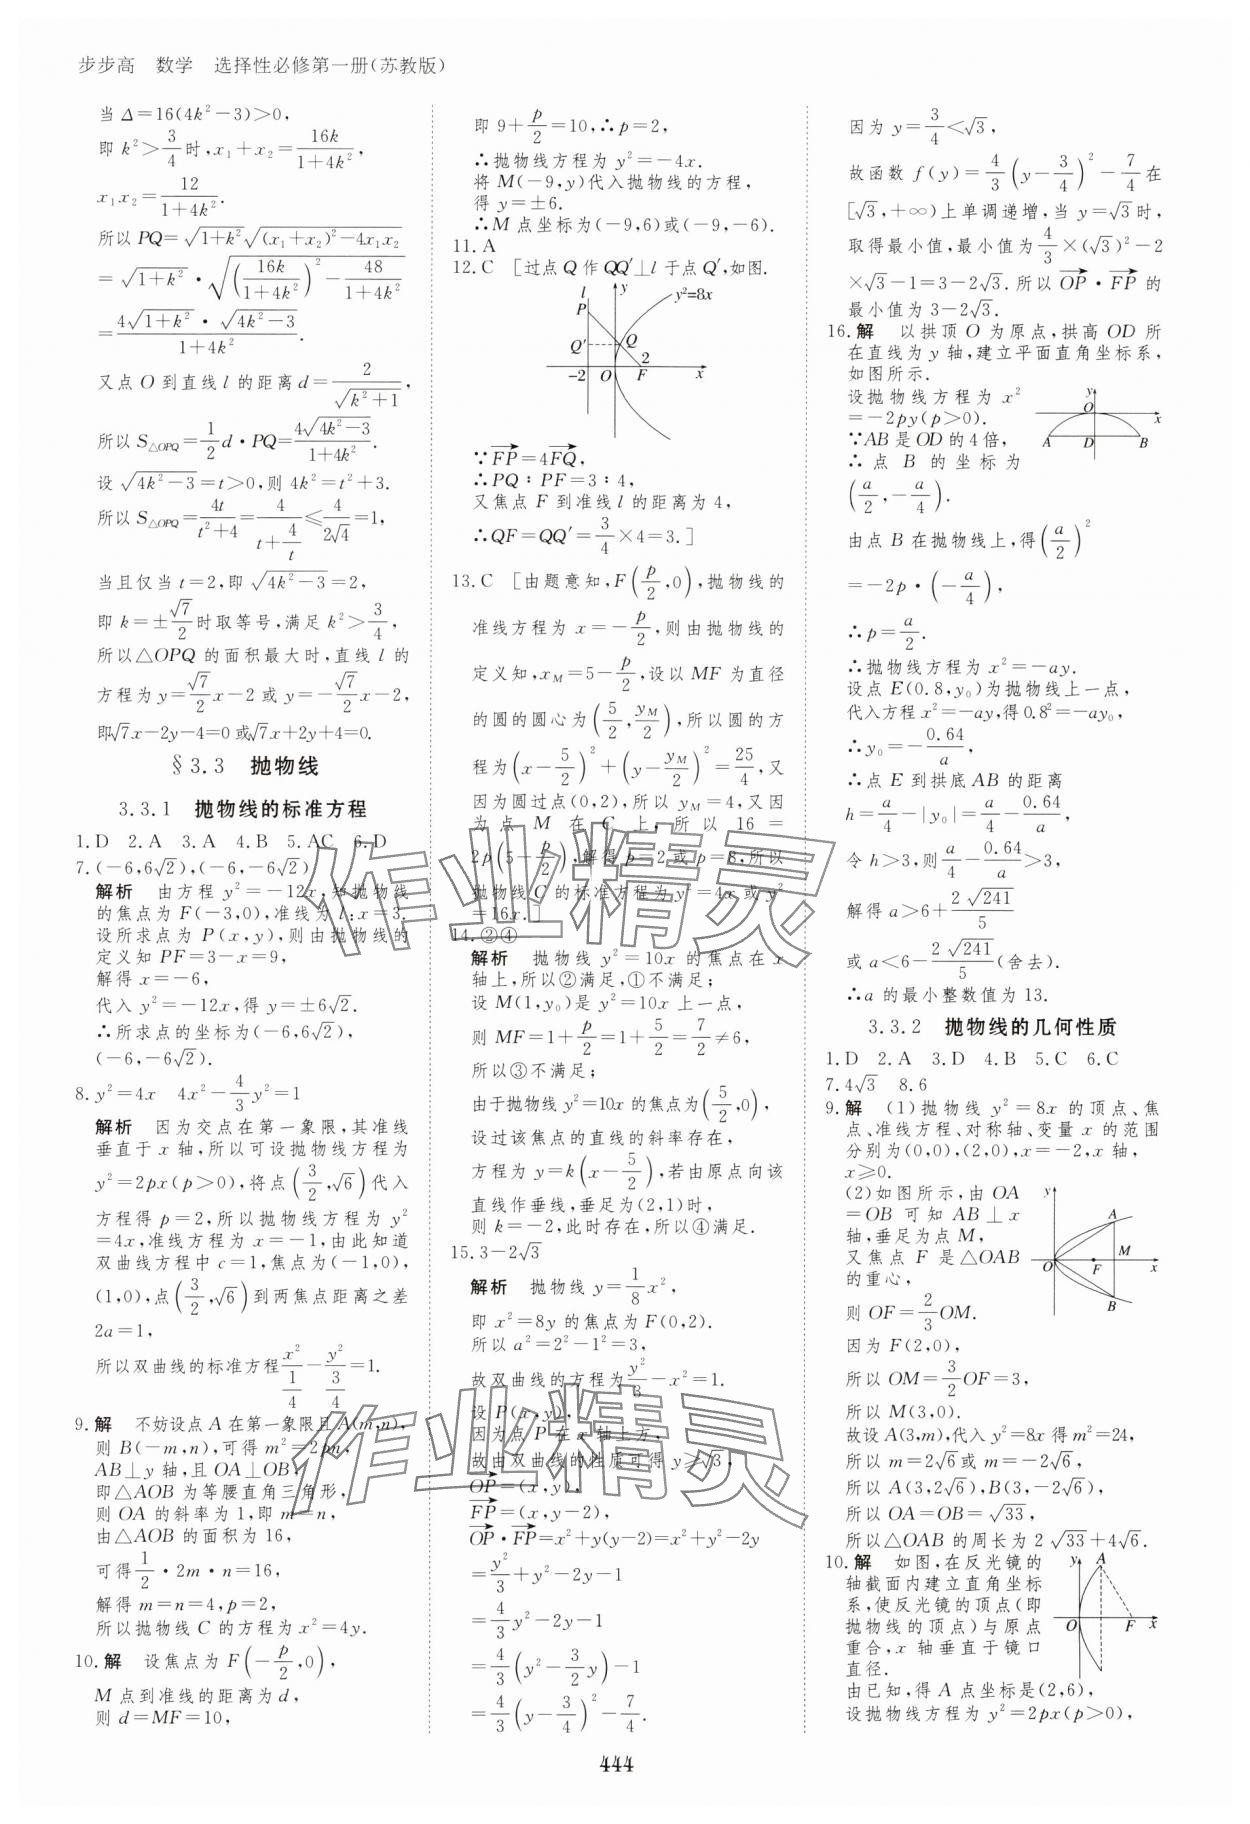 步步高 数学 选择性必修第一册(苏教版)
当 Δ=16(4k²-3)>0,
即 k²>3/4时,x₁+x₂=16k/(1+4k²),
x₁x₂=12/(1+4k²).
所以 PQ=√(1+k²)√((x₁+x₂)²-4x₁x₂)
=√(1+k²)·√((16k/(1+4k²))²-48/(1+4k²))
=4√(1+k²)·√(4k²-3)/(1+4k²).
又点 O 到直线 l 的距离 d=2/√(k²+1),
所以 S△OPQ=1/2 d·PQ=4√(4k²-3)/(1+4k²).
设 √(4k²-3)=t>0,则 4k²=t²+3.
所以 S△OPQ=4t/(t²+4)=4/(t+4/t)≤4/(2√4)=1,
当且仅当 t=2,即 √(4k²-3)=2,
即 k=±√7/2时取等号,满足 k²>3/4,
所以△OPQ 的面积最大时,直线 l 的
方程为 y=√7/2 x-2 或 y=-√7/2 x-2,
即√7x-2y-4=0或√7x+2y+4=0.
§3.3 抛物线
3.3.1 抛物线的标准方程
1.D 2.A 3.A 4.B 5.AC 6.D
7.(-6,6√2),(-6,-6√2)
解析 由方程 y²=-12x,知抛物线
的焦点为 F(-3,0),准线为 l:x=3.
设所求点为 P(x,y),则由抛物线的
定义知 PF=3-x=9,
解得 x=-6,
代入 y²=-12x,得 y=±6√2.
∴所求点的坐标为(-6,6√2),
(-6,-6√2).
8.y²=4x 4x²-4/3 y²=1
解析 因为交点在第一象限,其准线
垂直于 x 轴,所以可设抛物线方程为
y²=2px(p>0),将点(3/2,√6)代入
方程得 p=2,所以抛物线方程为 y²
=4x,准线方程为 x=-1,由此知道
双曲线方程中 c=1,焦点为(-1,0),
(1,0),点(3/2,√6)到两焦点距离之差
2a=1,
所以双曲线的标准方程x²/(1/4)-y²/(3/4)=1.
9.解 不妨设点 A 在第一象限且A(m,n),
则 B(-m,n),可得 m²=2pn,
AB⊥y 轴,且 OA⊥OB,
即△AOB 为等腰直角三角形,
则 OA 的斜率为 1,即 m=n,
由△AOB 的面积为 16,
可得1/2·2m·n=16,
解得 m=n=4,p=2,
所以抛物线 C 的方程为 x²=4y.
10.解 设焦点为 F(-p/2,0),
M 点到准线的距离为 d,
则 d=MF=10,
即 9+p/2=10,∴p=2,
∴抛物线方程为 y²=-4x.
将 M(-9,y)代入抛物线的方程,
得 y=±6.
∴M 点坐标为(-9,6)或(-9,-6).
11.A
12.C [过点 Q 作 QQ′⊥l 于点 Q′,如图.
l y y²=8x
P
Q′ Q
2
-2 O F x
∵FP=4FQ,
∴PQ∶PF=3∶4,
又焦点 F 到准线 l 的距离为 4,
∴QF=QQ′=3/4×4=3.]
13.C [由题意知,F(p/2,0),抛物线的
准线方程为 x=-p/2,则由抛物线的
定义知,xM=5-p/2,设以 MF 为直径
的圆的圆心为(5/2,yM/2),所以圆的方
程为(x-5/2)²+(y-yM/2)²=25/4,又
因为圆过点(0,2),所以 yM=4,又因
为点 M 在 C 上,所以 16=
2p(5-p/2),解得 p=2 或 p=8,所以
抛物线 C 的标准方程为 y²=4x 或 y²
=16x.]
14.②④
解析 抛物线 y²=10x 的焦点在 x
轴上,所以②满足,①不满足;
设 M(1,y₀)是 y²=10x 上一点,
则 MF=1+p/2=1+5/2=7/2≠6,
所以③不满足;
由于抛物线 y²=10x 的焦点为(5/2,0),
设过该焦点的直线的斜率存在,
方程为 y=k(x-5/2),若由原点向该
直线作垂线,垂足为(2,1)时,
则 k=-2,此时存在,所以④满足.
15.3-2√3
解析 抛物线 y=1/8 x²,
即 x²=8y 的焦点为 F(0,2).
所以 a²=2²-1²=3,
故双曲线的方程为y²/3-x²=1.
设 P(x,y),
因为点 P 在 x 轴上方,
故由双曲线的性质可得 y≥√3,
OP=(x,y),
FP=(x,y-2)
OP·FP=x²+y(y-2)=x²+y²-2y
=y²/3+y²-2y-1
=4/3 y²-2y-1
=4/3(y²-3/2 y)-1
=4/3(y-3/4)²-7/4.
因为 y=3/4<√3,
故函数 f(y)=4/3(y-3/4)²-7/4在
[√3,+∞)上单调递增,当 y=√3时,
取得最小值,最小值为4/3×(√3)²-2
×√3-1=3-2√3.所以 OP·FP 的
最小值为 3-2√3.
16.解 以拱顶 O 为原点,拱高 OD 所
在直线为 y 轴,建立平面直角坐标系,
如图所示.
设抛物线方程为 x²
=-2py(p>0).
∵AB是OD的4倍,
∴点 B 的坐标为
(a/2,-a/4).
y
O x
A D B
由点 B 在抛物线上,得(a/2)²
=-2p·(-a/4),
∴p=a/2.
∴抛物线方程为 x²=-ay.
设点 E(0.8,y₀)为抛物线上一点,
代入方程 x²=-ay,得 0.8²=-ay₀,
∴y₀=-0.64/a.
∴点 E 到拱底 AB 的距离
h=a/4-|y₀|=a/4-0.64/a,
令 h>3,则a/4-0.64/a>3,
解得 a>6+2√241/5
或 a<6-2√241/5(舍去).
∴a 的最小整数值为 13.
3.3.2 抛物线的几何性质
1.D 2.A 3.D 4.B 5.C 6.C
7.4√3 8.6
9.解 (1)抛物线 y²=8x 的顶点、焦
点、准线方程、对称轴、变量 x 的范围
分别为(0,0),(2,0),x=-2,x 轴,
x≥0.
(2)如图所示,由 OA
=OB 可知 AB⊥x
轴,垂足为点 M,
又焦点 F 是△OAB
的重心,
则 OF=2/3 OM.
y
A
M
O F x
B
因为 F(2,0),
所以 OM=3/2 OF=3,
所以 M(3,0).
故设 A(3,m),代入 y²=8x 得 m²=24,
所以 m=2√6或 m=-2√6,
所以 A(3,2√6),B(3,-2√6),
所以 OA=OB=√33,
所以△OAB 的周长为 2√33+4√6.
10.解 如图,在反光镜的
轴截面内建立直角坐标
系,使反光镜的顶点(即
抛物线的顶点)与原点
重合,x 轴垂直于镜口
直径.
y A
O F x
由已知,得 A 点坐标是(2,6),
设抛物线方程为 y²=2px(p>0),
作业精灵
作业精灵
444